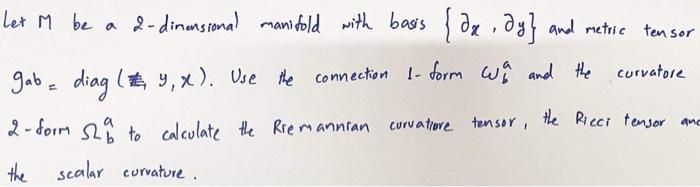 Let M be a 2-dimensional manifold with basis {∂x, ∂y} and metric tensor
gab = diag (y, x). Use the connection 1-form ω^a_b and the curvature
2-form Ω^a_b to calculate the Riemannian curvatiore tensor, the Ricci tensor and
the scalar curvature.